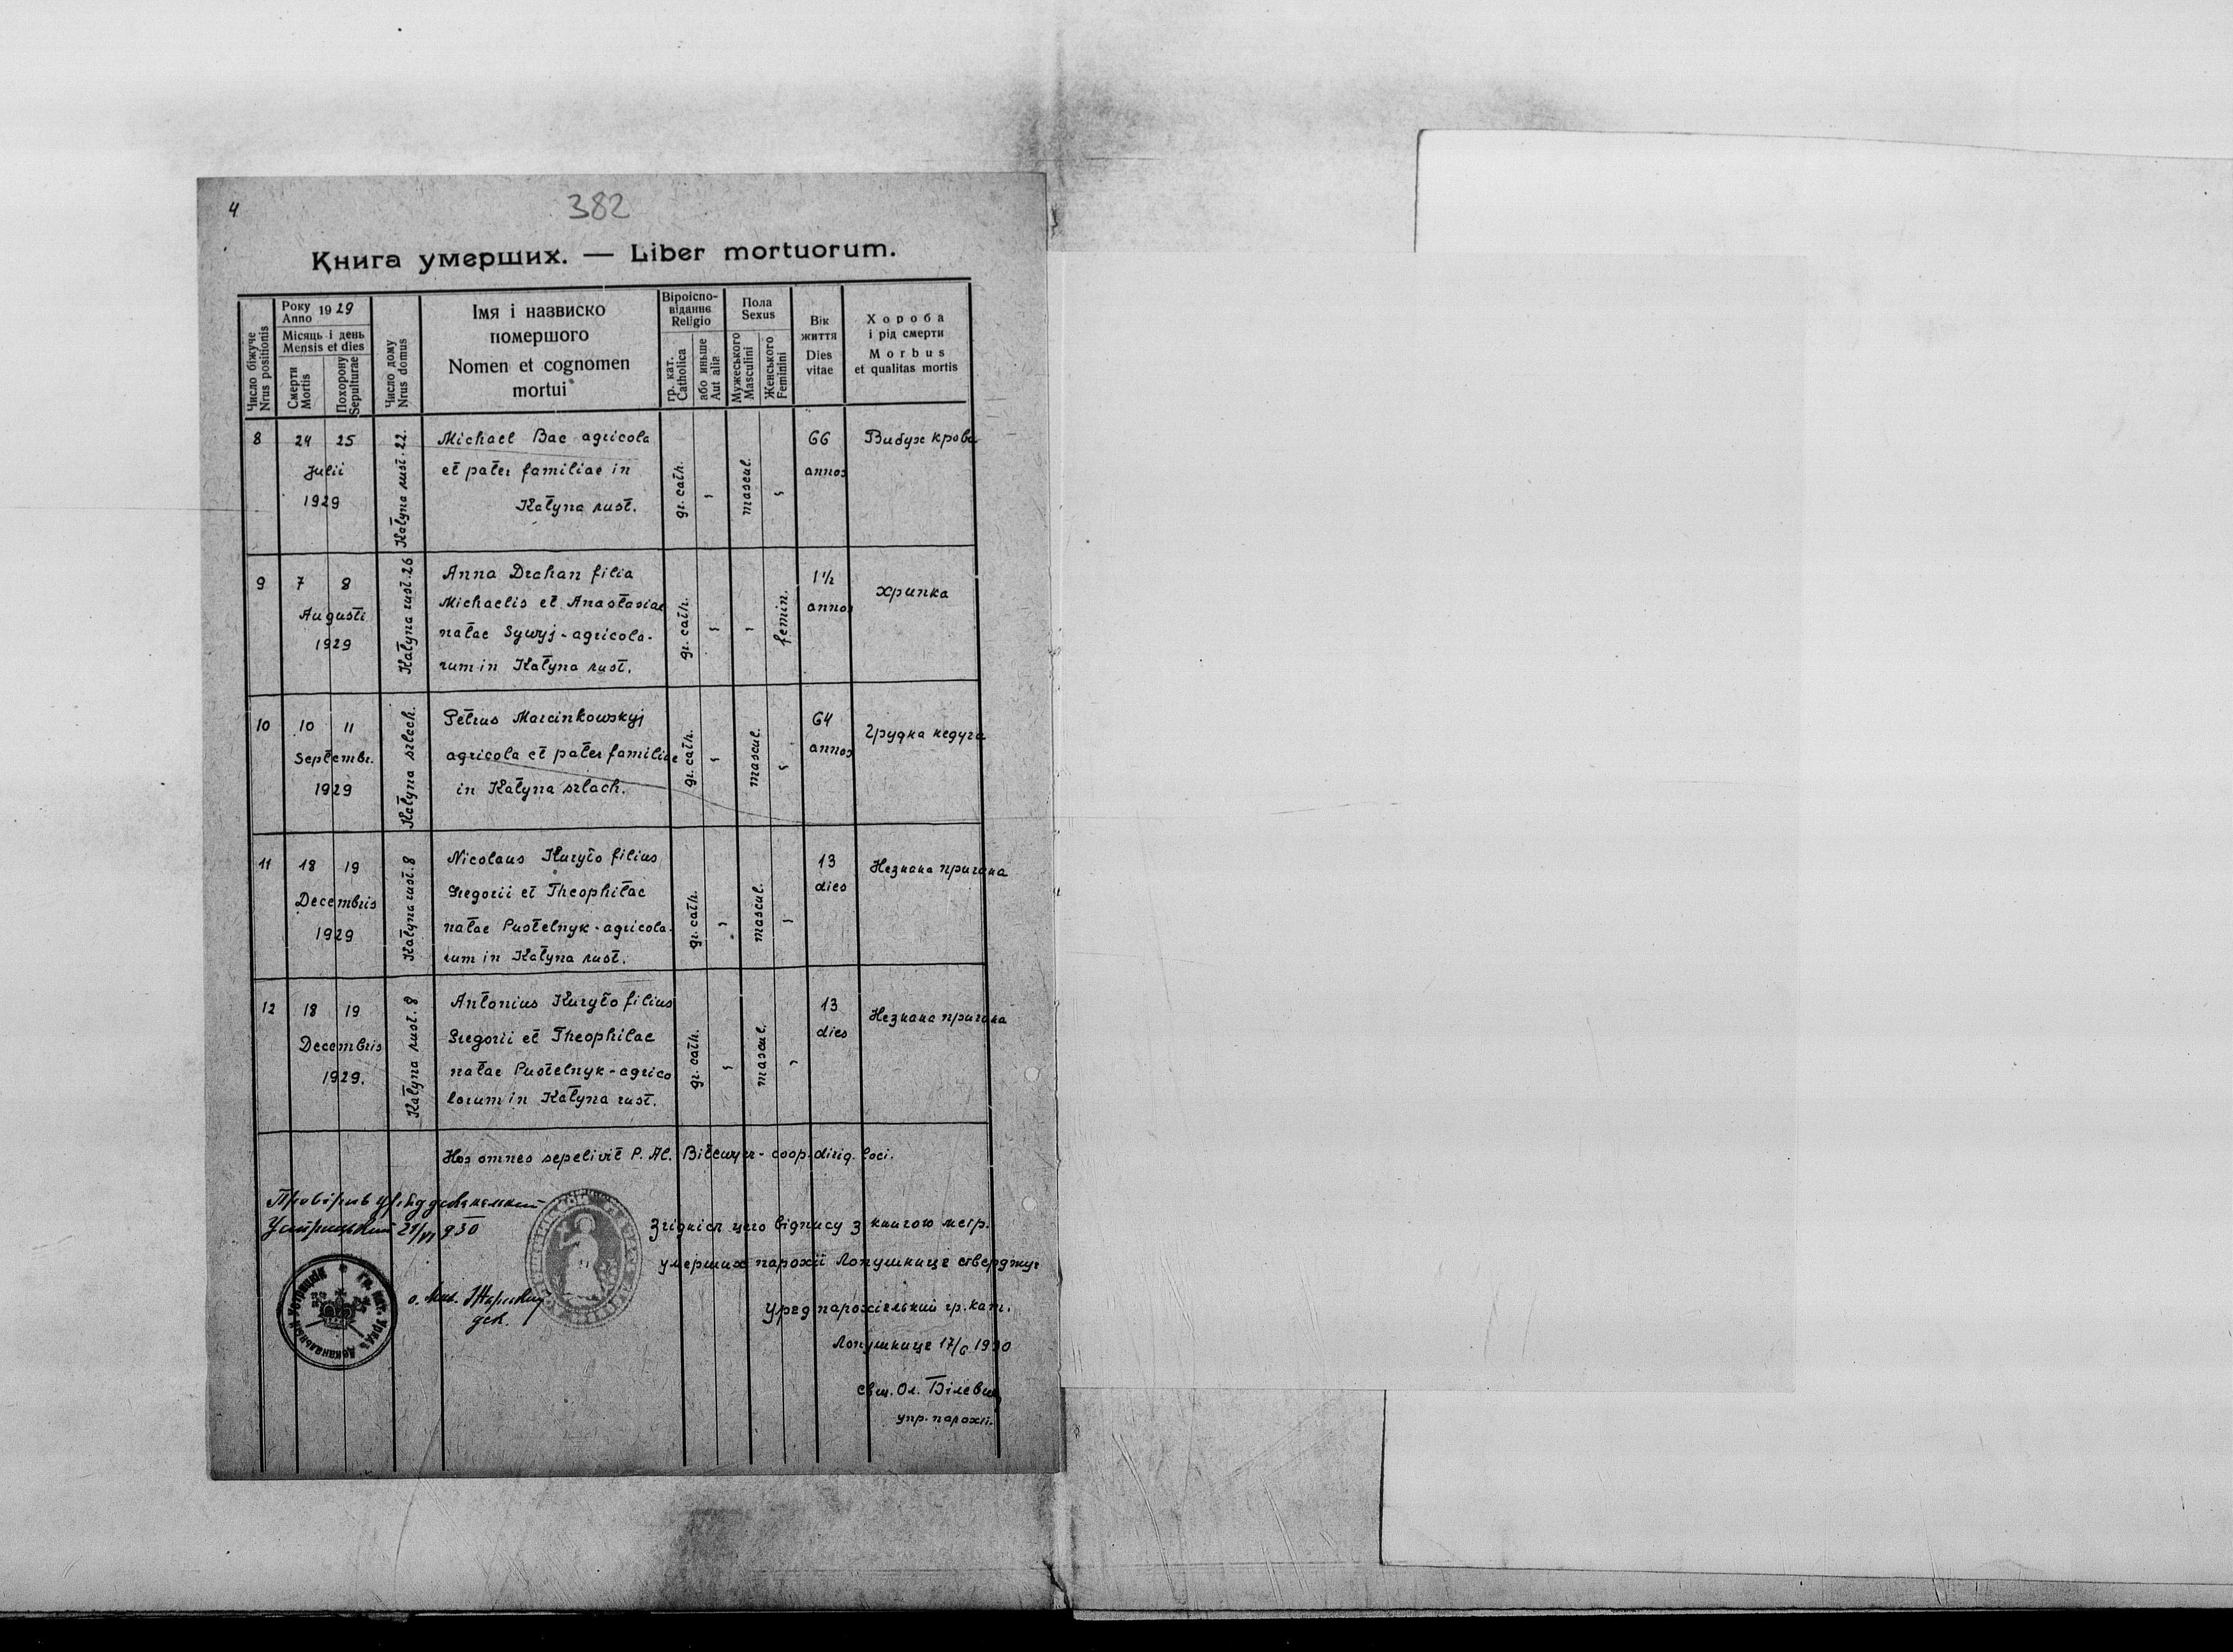 4
382
Книга умерших. — Liber mortuorum.
Число біжуче
Nrus positionis
Року
Anno 1929
Місяць і день
Mensis et dies
Смерти
Mortis
Похорону
Sepulturae
Число дому
Nrus domus
Імя і назвиско
помершого
Nomen et cognomen
mortui
Віроіспо-
віданнє
Religio
гр. кат.
Catholica
або иньше
Aut alia
Пола
Sexus
Мужеського
Masculini
Женського
Feminini
Вік
життя
Dies
vitae
Хороба
і рід смерти
Morbus
et qualitas mortis
8
24 25
Julii
1929
Kałyna rust. 22.
Michael Bac agricola
et pater familiae in
Kałyna rust.
gr. cath.
mascul.
66
annos
Вибух крови
9
7 8
Augusti
1929
Kałyna rust. 26
Anna Drahan filia
Michaelis et Anastasiae
natae Sywyj - agricola-
rum in Kałyna rust.
gr. cath.
femin.
1 1/2
annos
хрипка
10
10 11
Septembr.
1929
Kałyna szlach.
Petrus Marcinkowskyj
agricola et pater familiae
in Kałyna szlach.
gr. cath.
mascul.
64
annos
Грудна недуга
11
18 19
Decembris
1929
Kałyna rust. 8
Nicolaus Kuryło filius
Gregorii et Theophilae
natae Pustelnyk - agricola-
rum in Kałyna rust.
gr. cath.
mascul.
13
dies
Незнана причина
12
18 19
Decembris
1929.
Kałyna rust. 8
Antonius Kuryło filius
Gregorii et Theophilae
natae Pustelnyk - agrico
larum in Kałyna rust.
gr. cath.
mascul.
13
dies
Незнана причина
Hos omnes sepelivit P. Al. Bilewycz - coop. dirig. loci.
Провірив
Устрицький 21/VI 930
о.
дек.
Згідність цего відпису з книгою метр.
умерших парохії Лопушниця стверджує
Уряд парохіяльний гр. кат.
Лопушниця 17/6 1930
свщ. Ол. Білевич
упр. парохії.